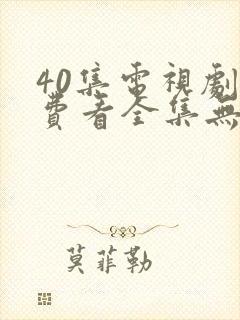 40集電視劇
費看全集無
莫菲勒